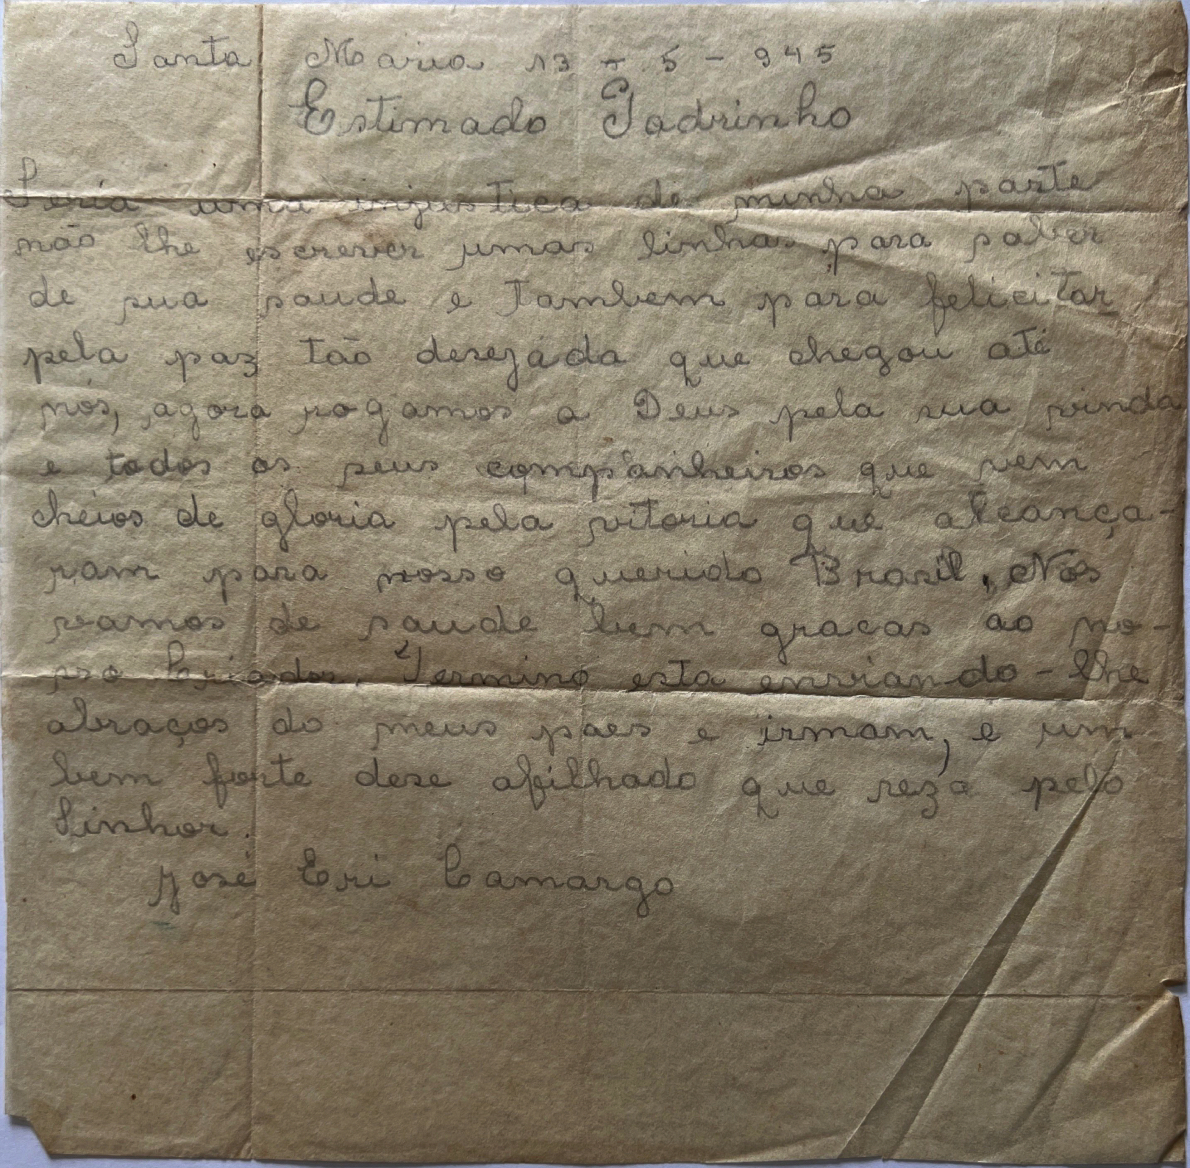 Santa Maria 13 - 5 - 945
Estimado Padrinho
Seria uma injustica de minha parte
não lhe escrever umas linhas para saber
de sua saude e tambem para felicitar
pela paz tão desejada que chegou até
nós, agora rogamos a Deus pela sua vinda
e todos os seus companheiros que vem
cheios de gloria pela vitoria que alcança-
ram para nosso querido Brasil, Nós
vamos de saude bem gracas ao no-
sso Criador. Termino esta enviando-lhe
abraços do meus paes e irmam, e um
bem forte dese afilhado que reza pelo
Sinhor.
José Eri Camargo